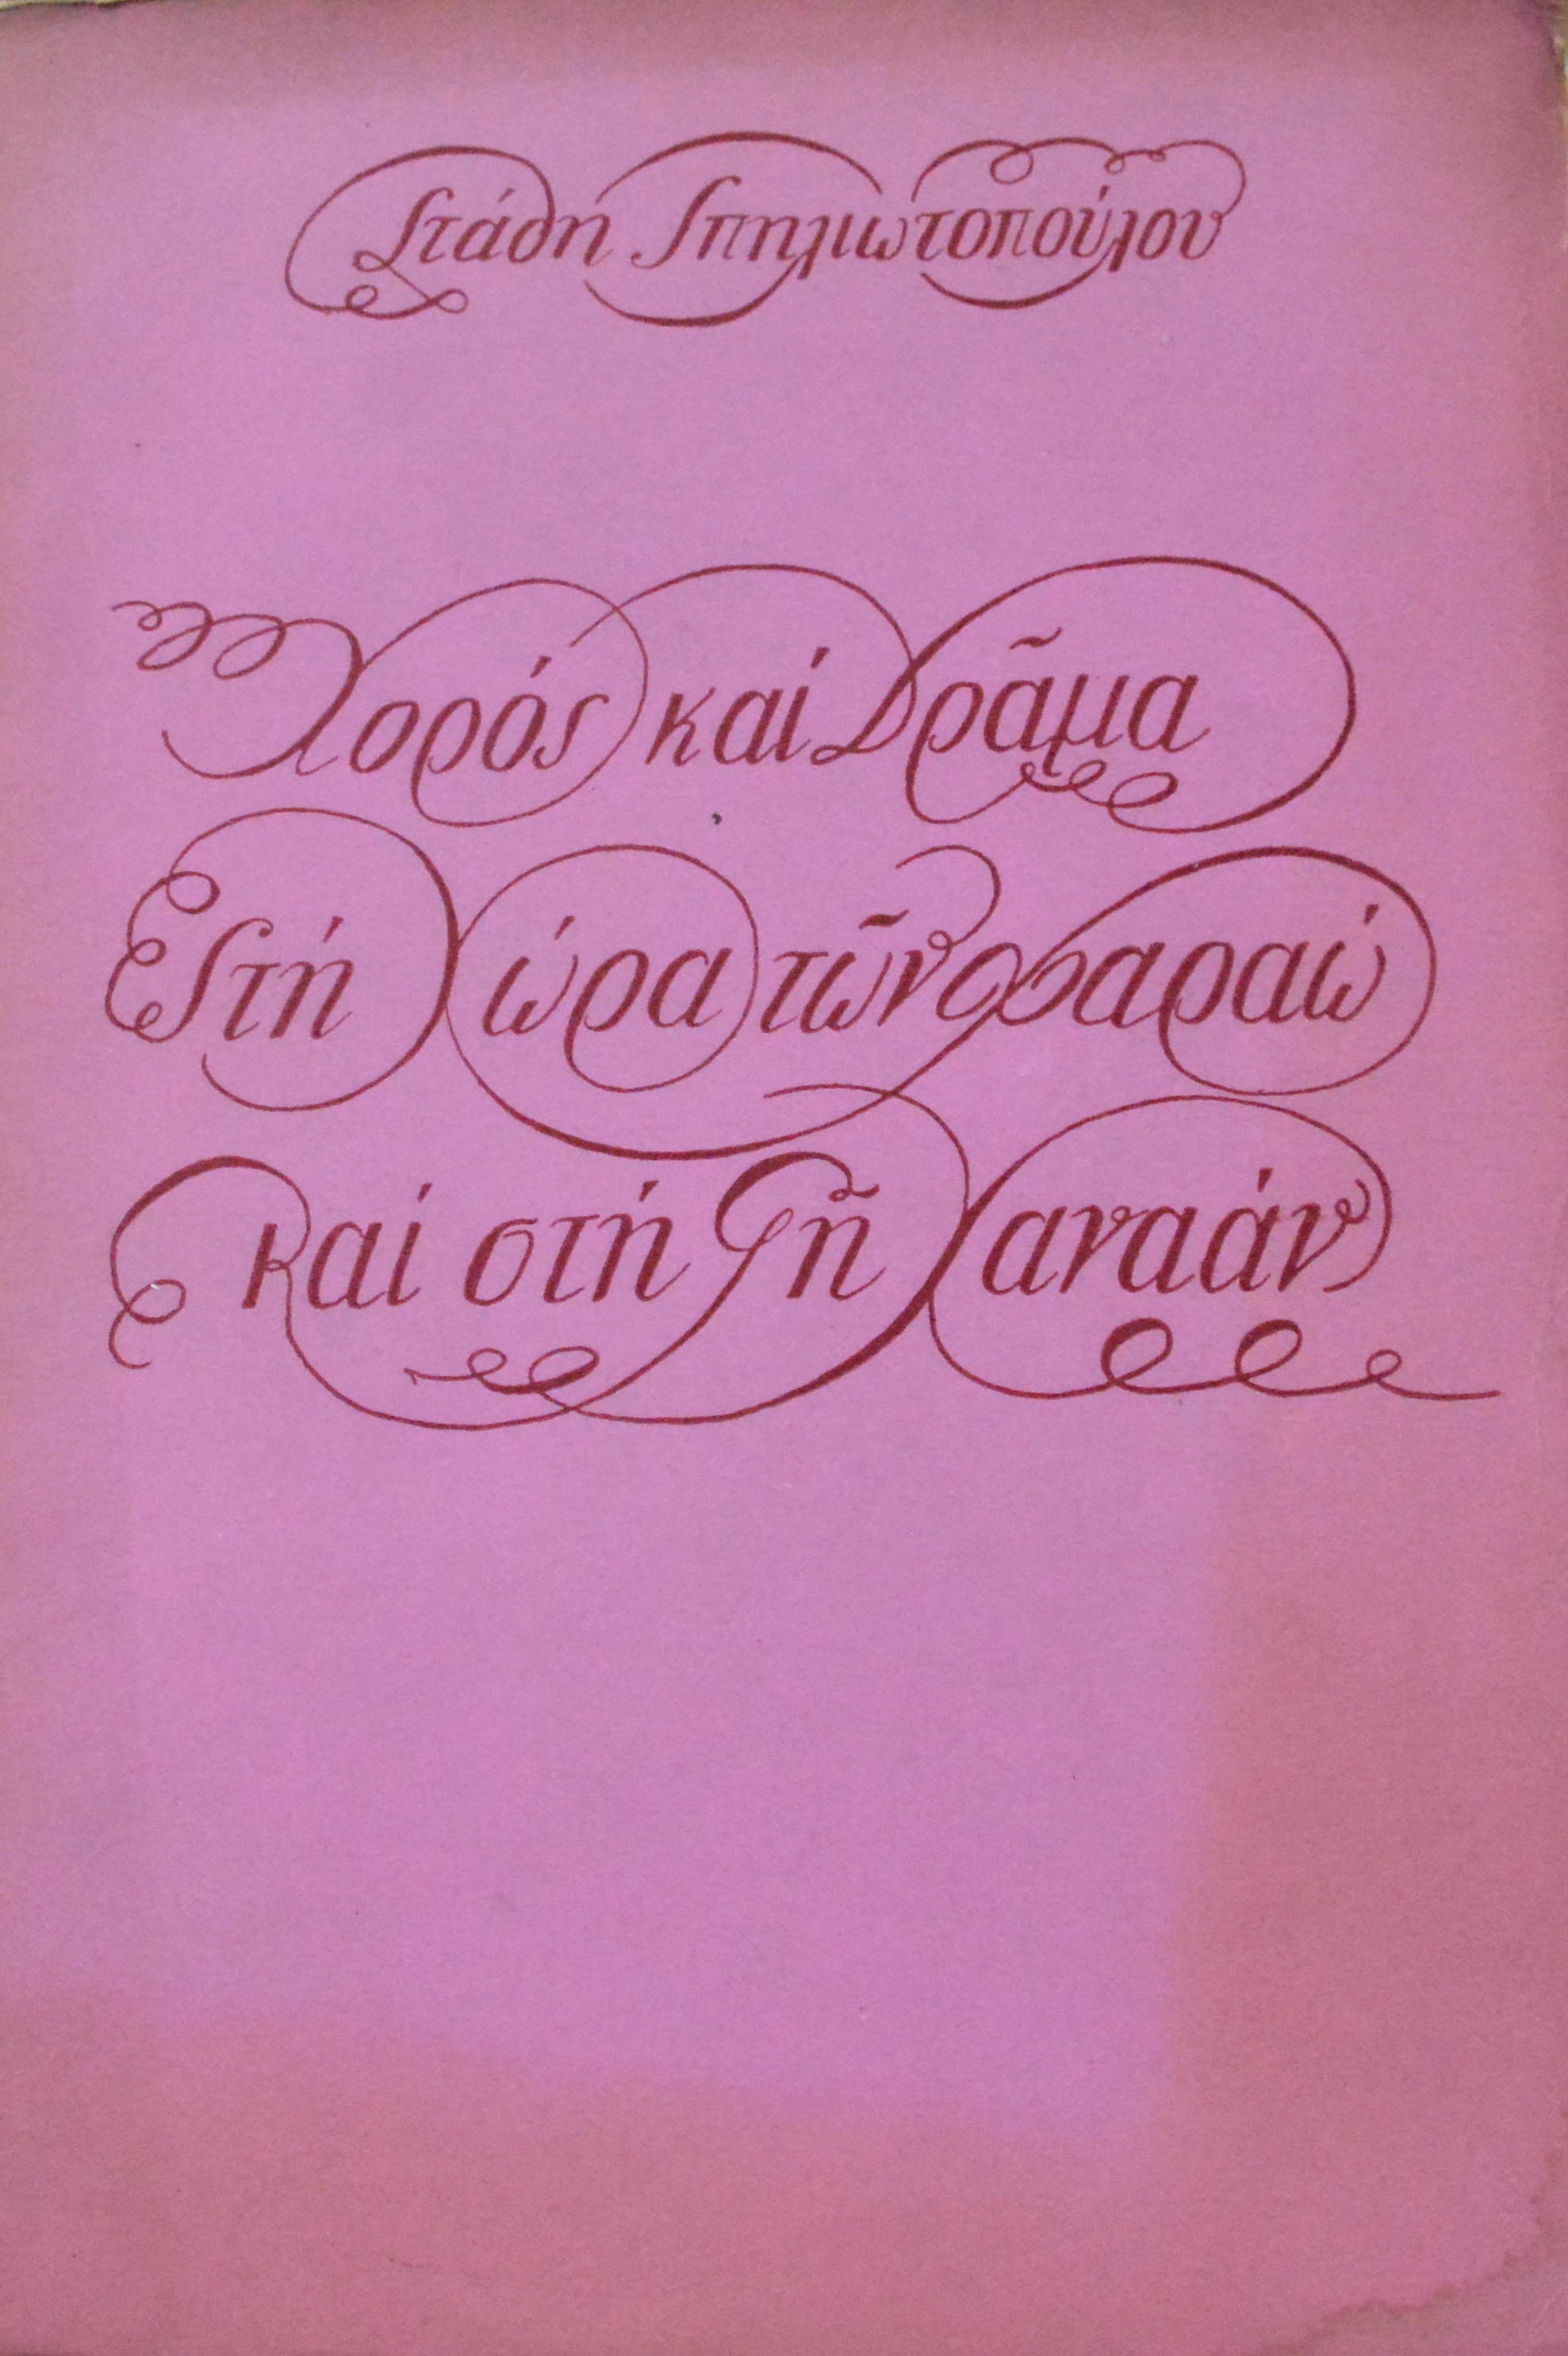 Στάθη Σπηλιωτοπούλου
Χορός καί Δρᾶμα
Στή χώρα τῶν Φαραώ
καί στή Γῆ Χαναάν